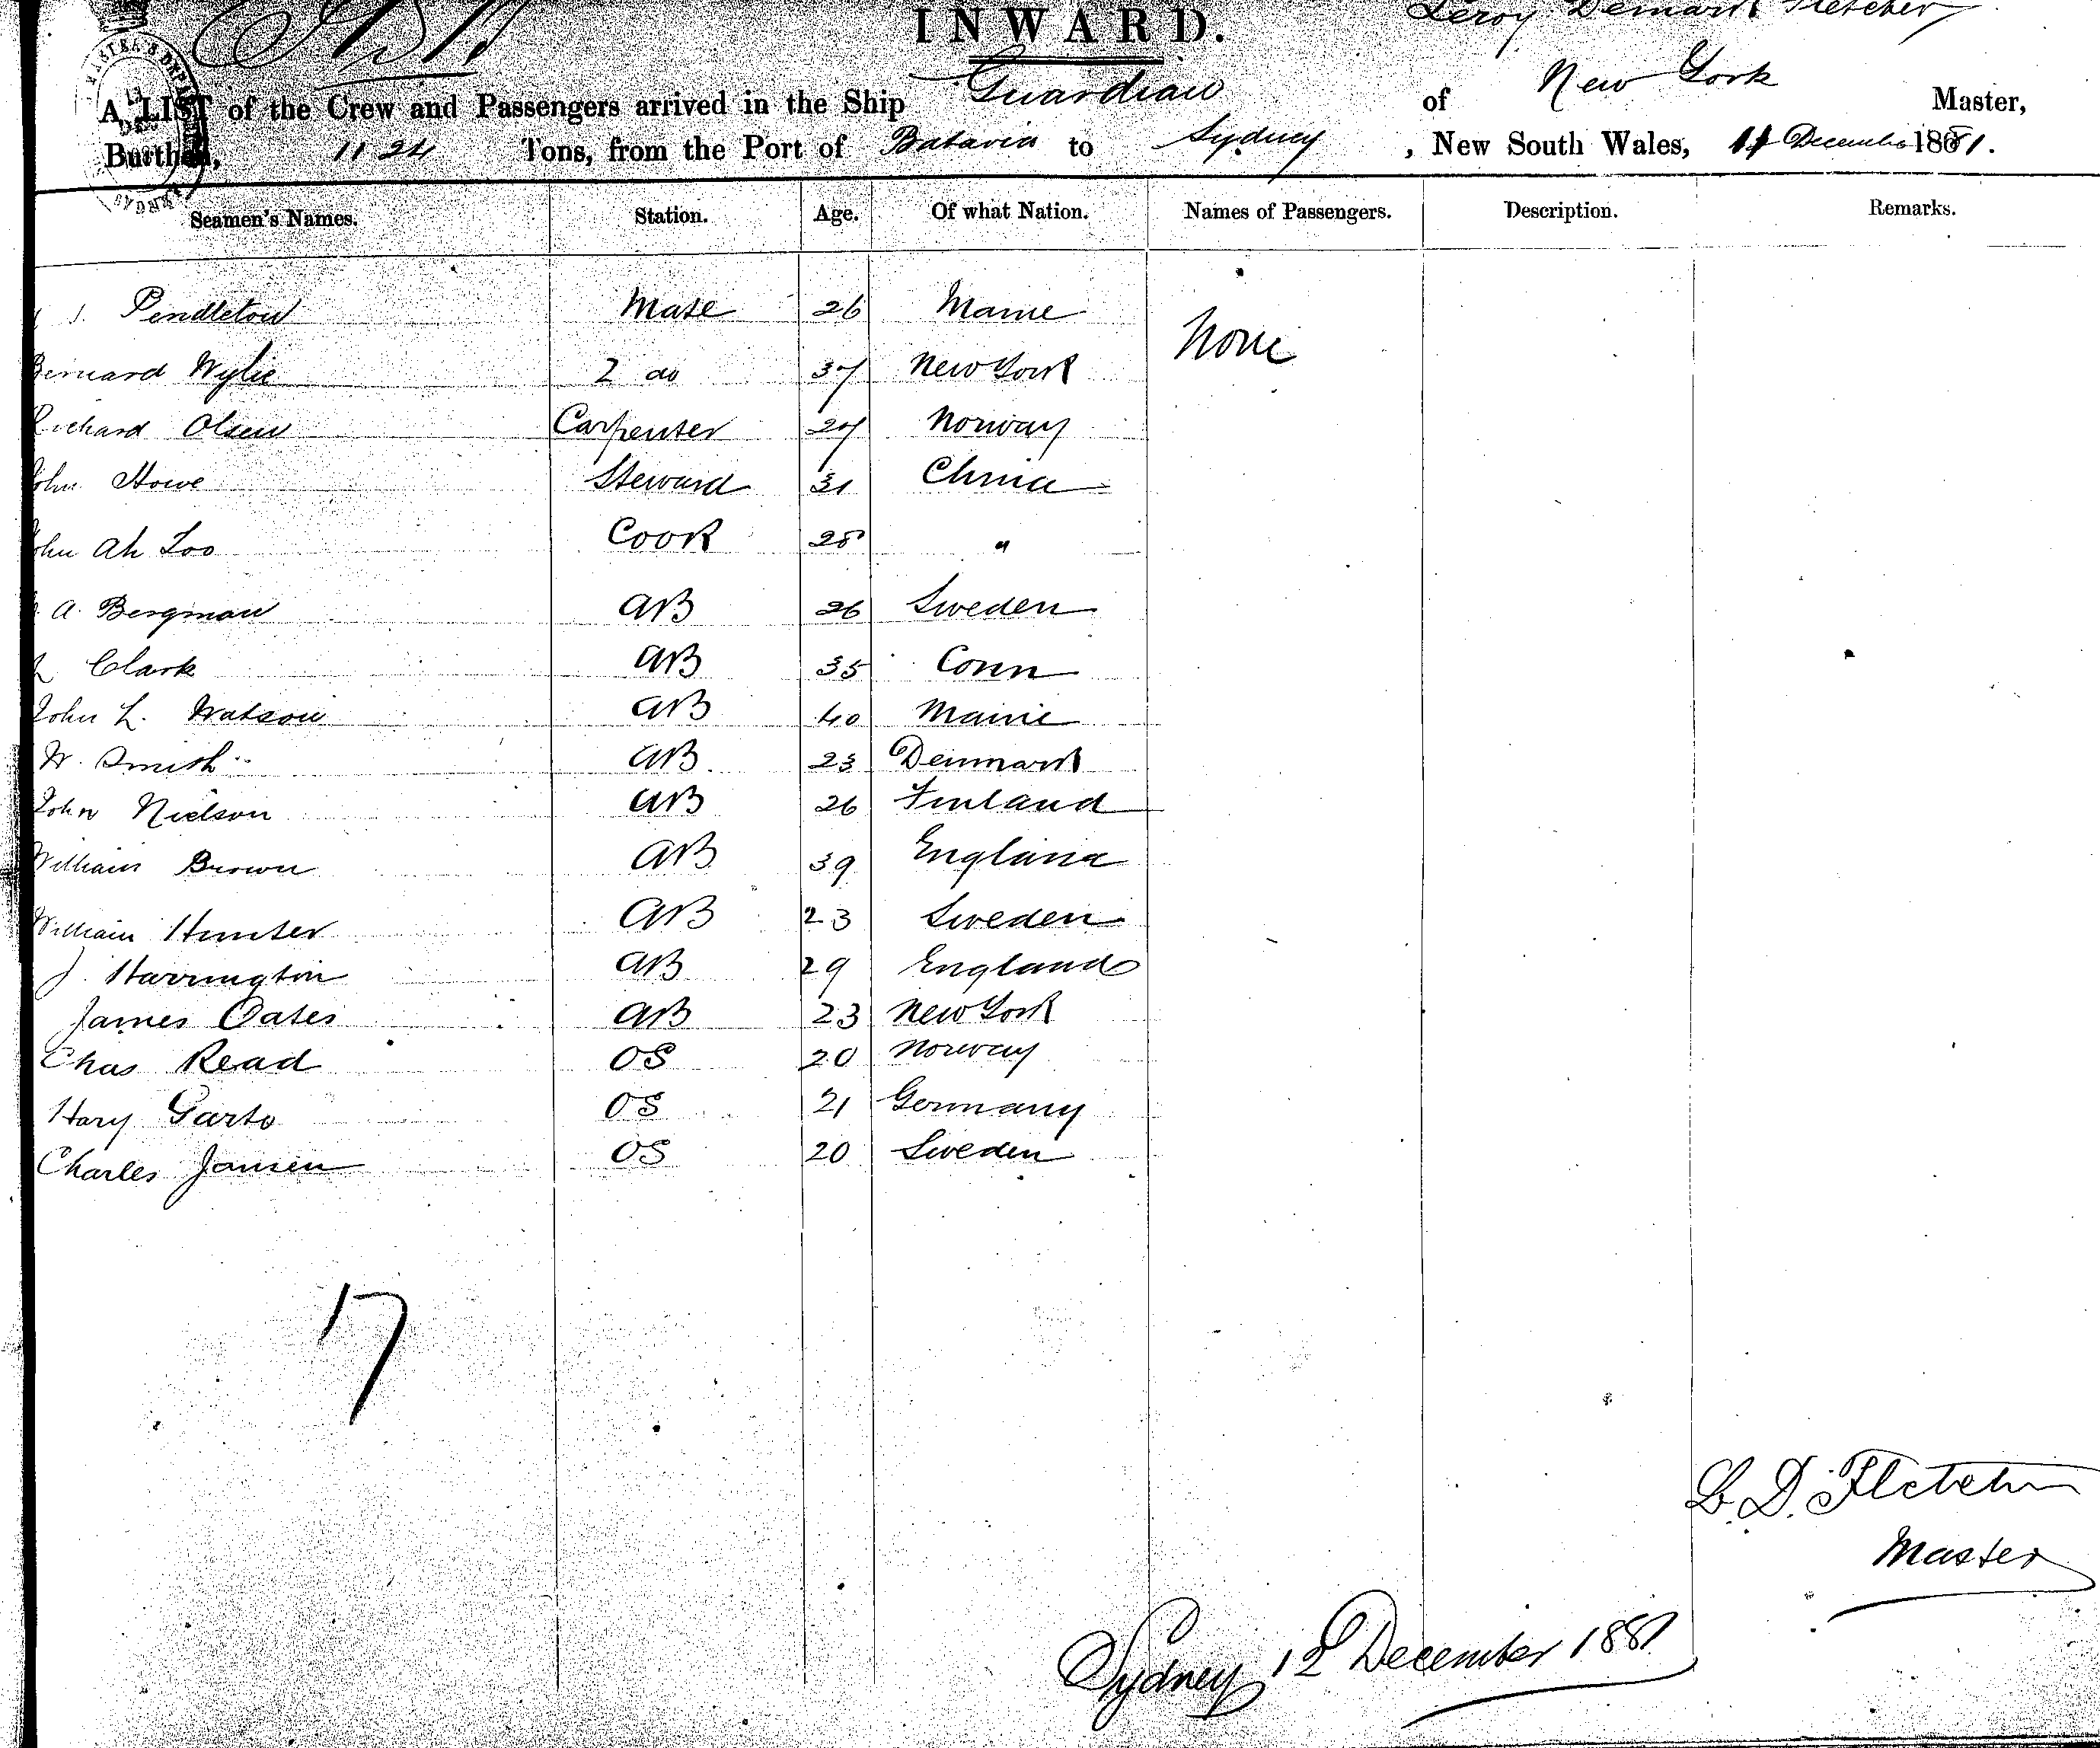 INWARD.
Leroy Denmark Fletcher
A LIST of the Crew and Passengers arrived in the Ship Guardian of New York Master,
Burthen, 1124 Tons, from the Port of Batavia to Sydney, New South Wales, 11 December 1881.
Seamen's Names. Station. Age. Of what Nation. Names of Passengers. Description. Remarks.
Pendleton Mate 26 Maine None
Bernard Wylie 2 do 37 New York
Richard Olsen Carpenter 27 Norway
John Howe Steward 31 China
John Ah Loo Cook 28 "
A. Bergman AB 26 Sweden
Clark AB 35 Conn
John L. Watson AB 40 Maine
W. Smith AB 23 Denmark
John Nielson AB 26 Finland
William Brown AB 39 England
William Hunter AB 23 Sweden
J. Harrington AB 29 England
James Oates AB 23 New York
Chas Read OS 20 Norway
Hary Garto OS 21 Germany
Charles Jansen OS 20 Sweden
17
L. D. Fletcher
Master
Sydney 12 December 1881